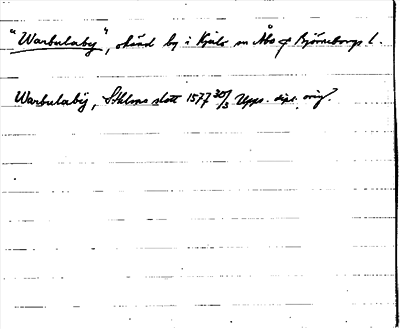 "Warbulaby", okänd by i Kjulo sn Åbo o Björneborgs l.
Warbulabÿ, Sthlms slott 1577 30/3 Upps. dipl. orig.